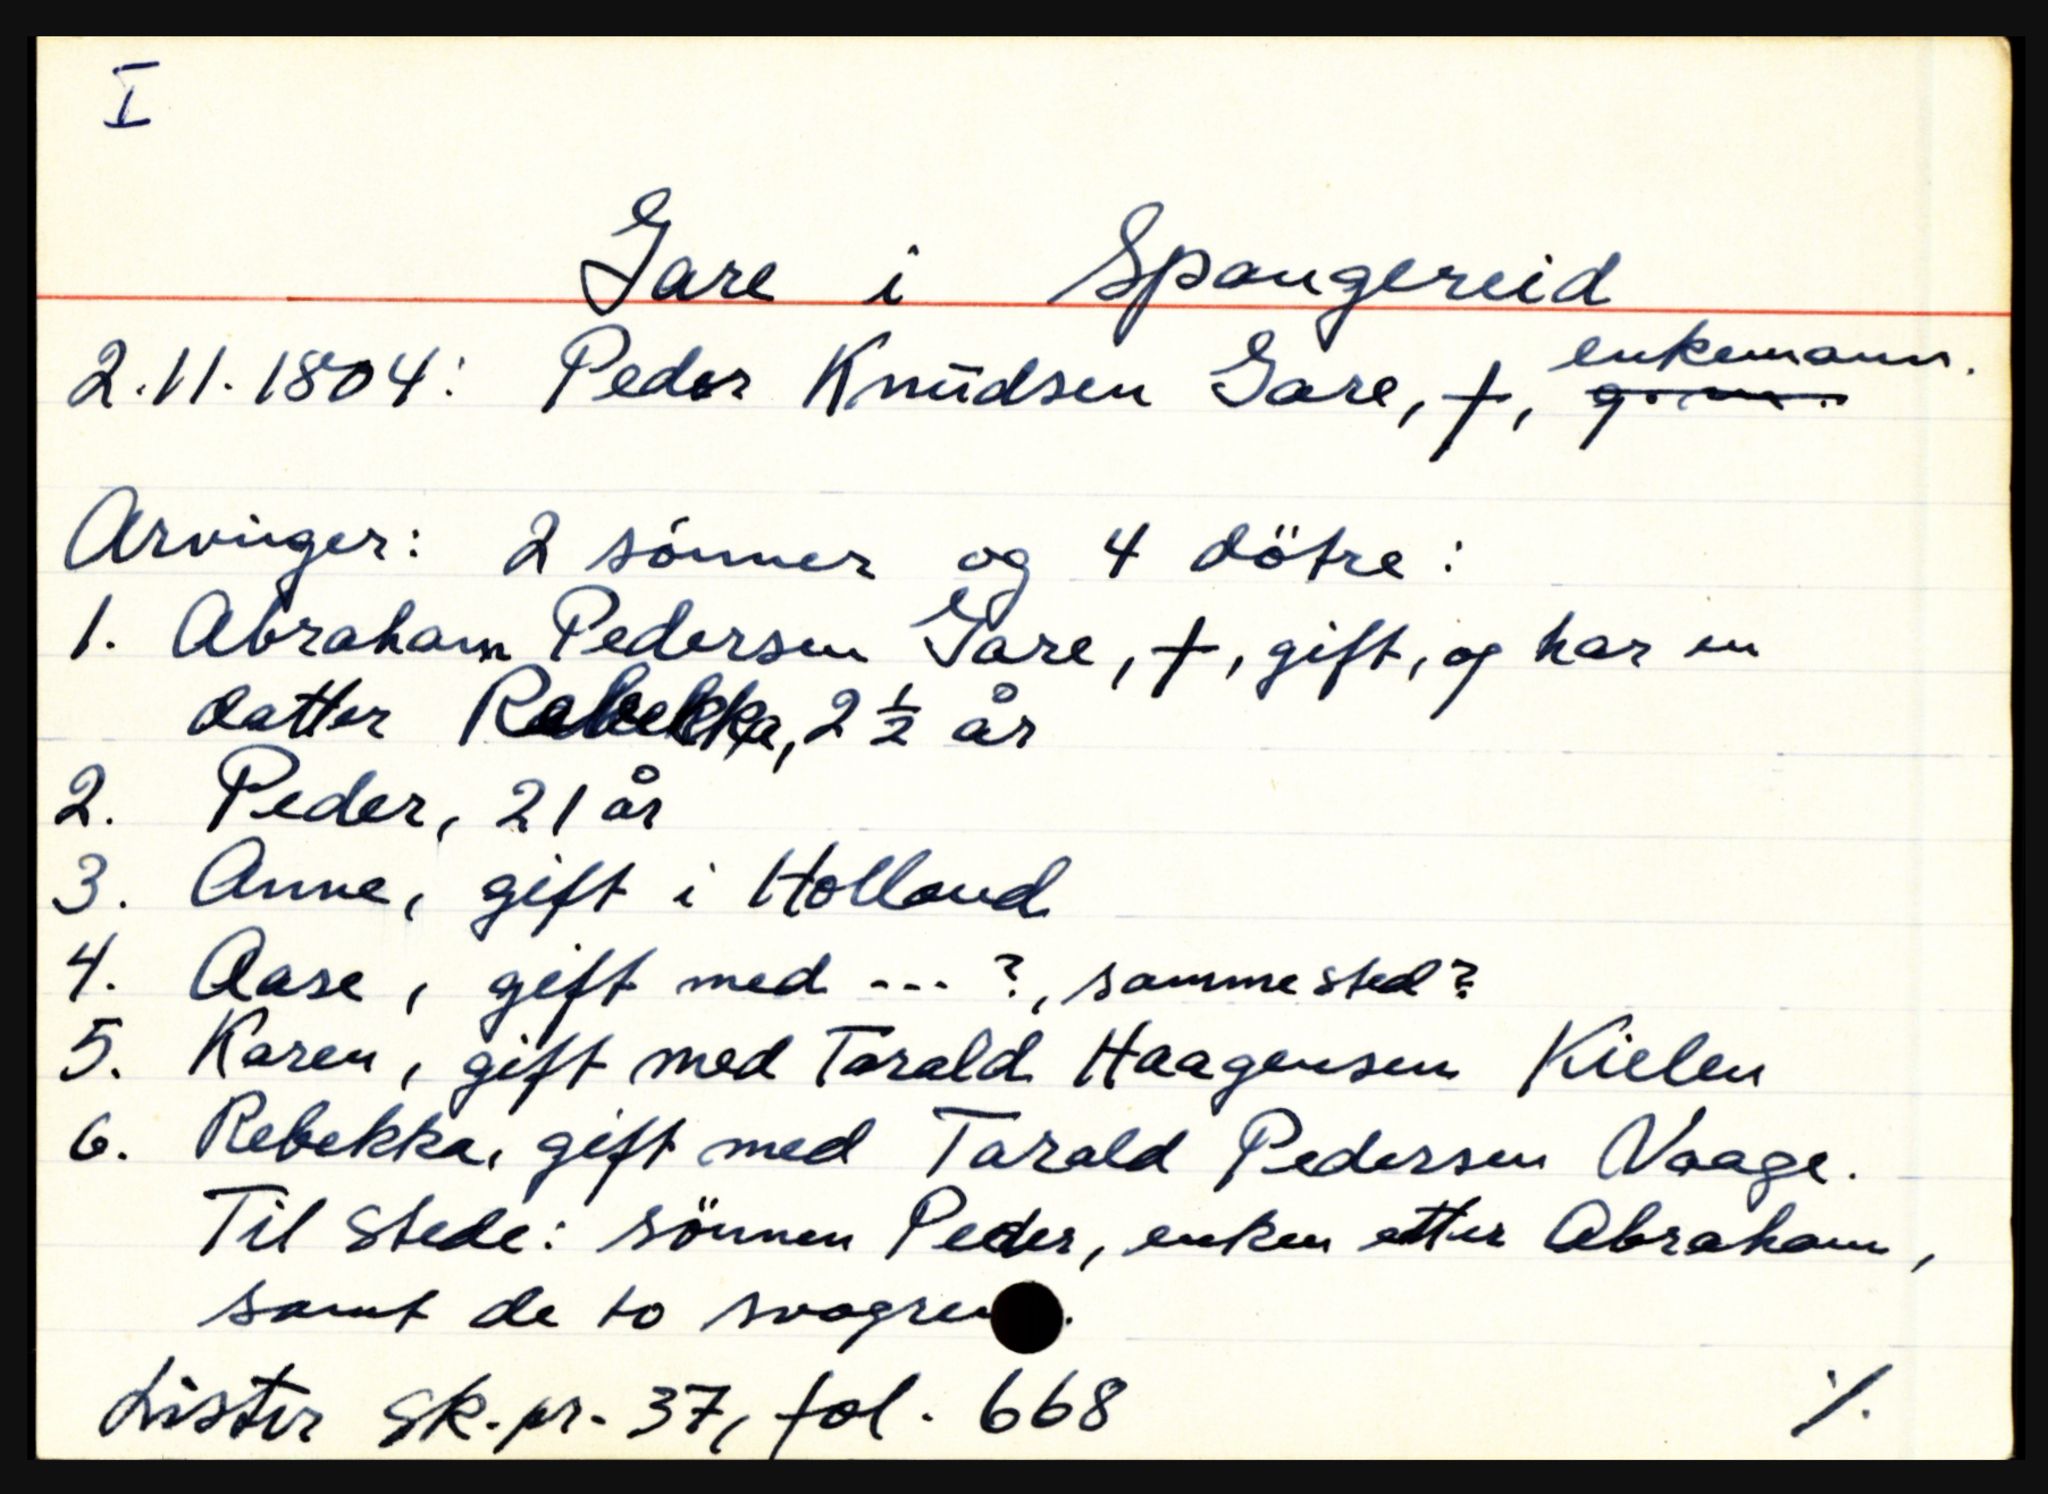 I
Gare i Spangereid
2.11.1804: Peder Knudsen Gare, †, enkemann.
g. m.
Arvinger: 2 sönner og 4 dötre:
1. Abraham Pedersen Gare, †, gift, og har en
datter Rebekka, 2 ½ år
2. Peder, 21 år
3. Anne, gift i Holland
4. Aase, gift med ... ?, samme sted?
5. Karen, gift med Tarald Haagensen Kielen
6. Rebekka, gift med Tarald Pedersen Vaage.
Til stede: sönnen Peder, enken etter Abraham,
samt de to svogrene.
Lister sk.pr. 37, fol. 668
./.